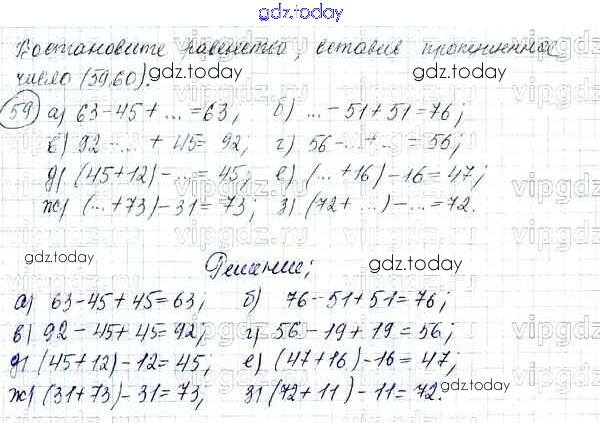 gdz.today
Востановите равенства, вставив пропущенное
число (59,60).
gdz.today
59 а) 63-45+ ... =63; б) ... -51+51=76;
в) 92- ... + 45= 92; г) 56-...+... = 56;
д) (45+12)-... = 45; е) (...+16)-16=47;
ж) (...+73)-31= 73; з) (72+...)-...=72.
gdz.today
gdz.today
Решение;
gdz.today
а) 63-45+45=63; б) 76-51+51=76;
в) 92-45+45=92; г) 56-19+19=56;
д) (45+12)-12=45; е) (47+16)-16=47;
ж) (31+73)-31=73; з) (72+11)-11=72.
gdz.today
gdz.today